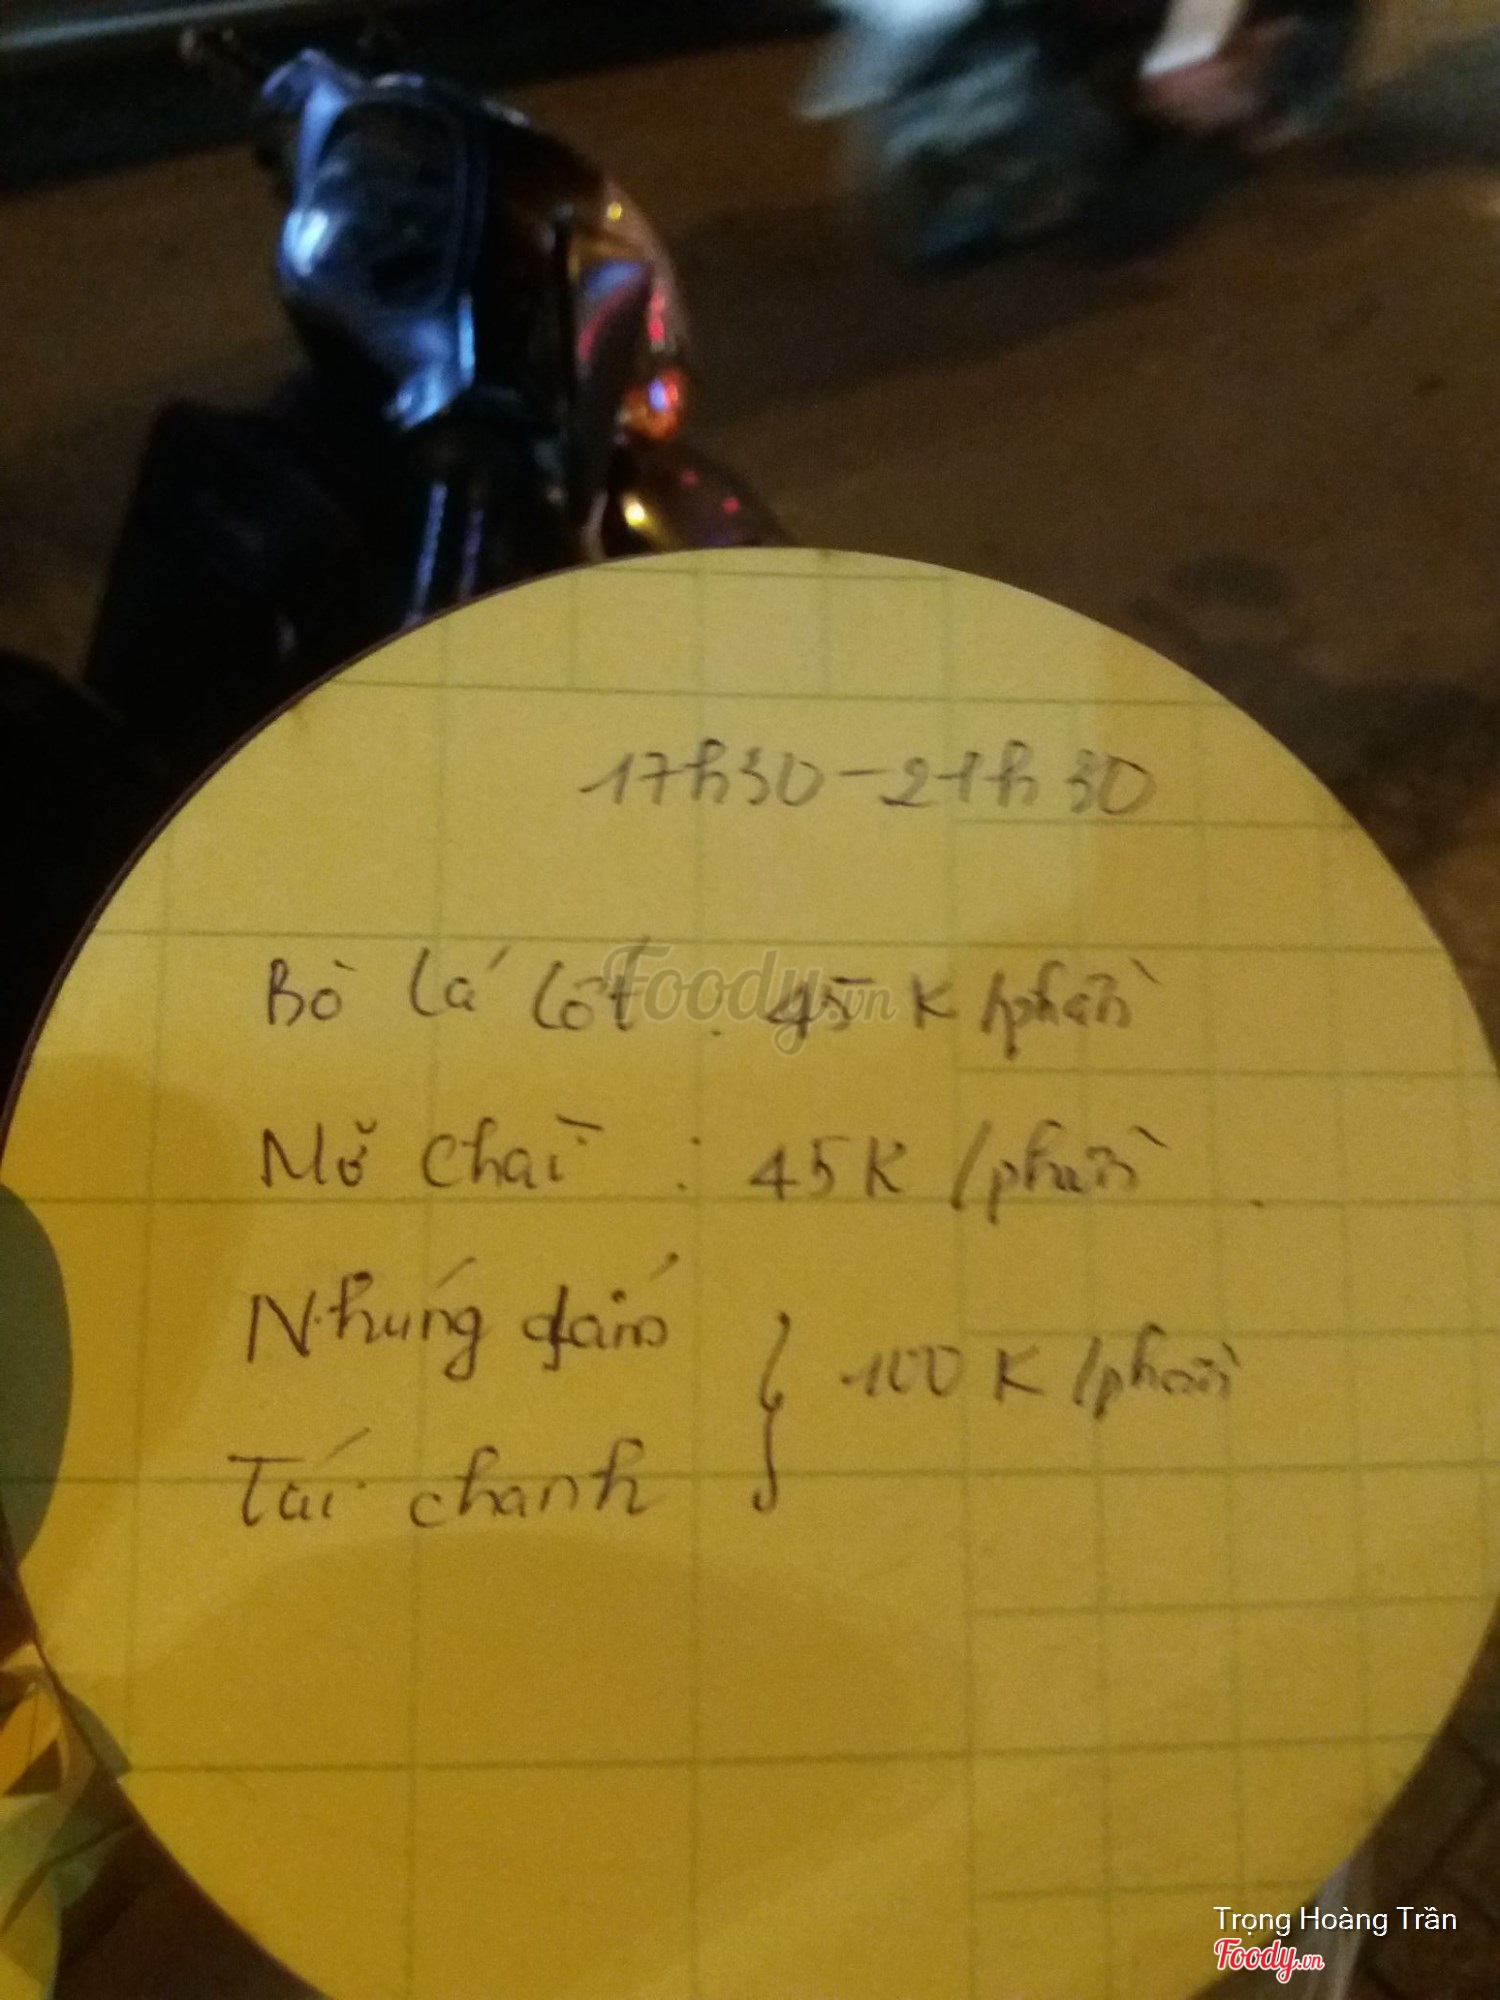 17h30-21h30
Bò lá lốt : 45K/phần
Mỡ chài : 45K/phần
Nhúng dấm
Tái chanh
} 100K/phần
Foody.vn
Trọng Hoàng Trần
Foody.vn